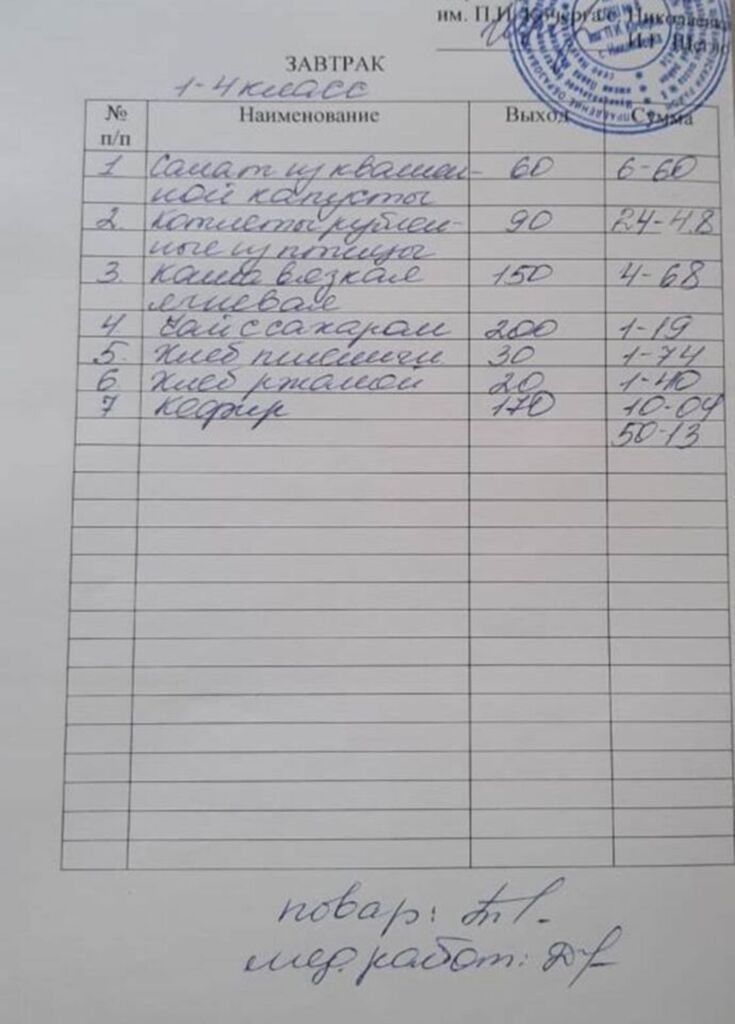 им. П.И. Кочерга с. Николаевка
ЗАВТРАК
1-4 класс
№ п/п Наименование Выход Сумма
1 Салат из квашен- 60 6-60
ной капусты
2. Котлеты рублен- 90 24-48
ные из птицы
3. Каша вязкая 150 4-68
ячневая
4 Чай с сахаром 200 1-19
5. Хлеб пшеничн 30 1-74
6 Хлеб ржаной 20 1-40
7 Кефир 170 10-04
50-13
повар:
мед. работ: